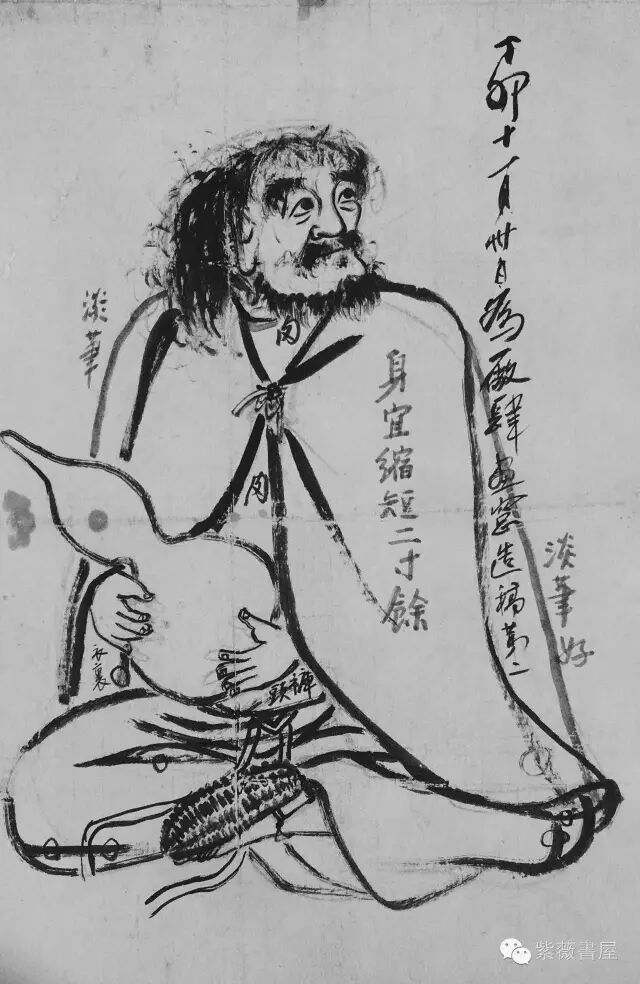 丁卯十一月卅日為厰肆画造稿第二
淡筆好
身宜縮短二寸餘
肉
肉
淡筆
褲頭
衣裏
紫薇書屋